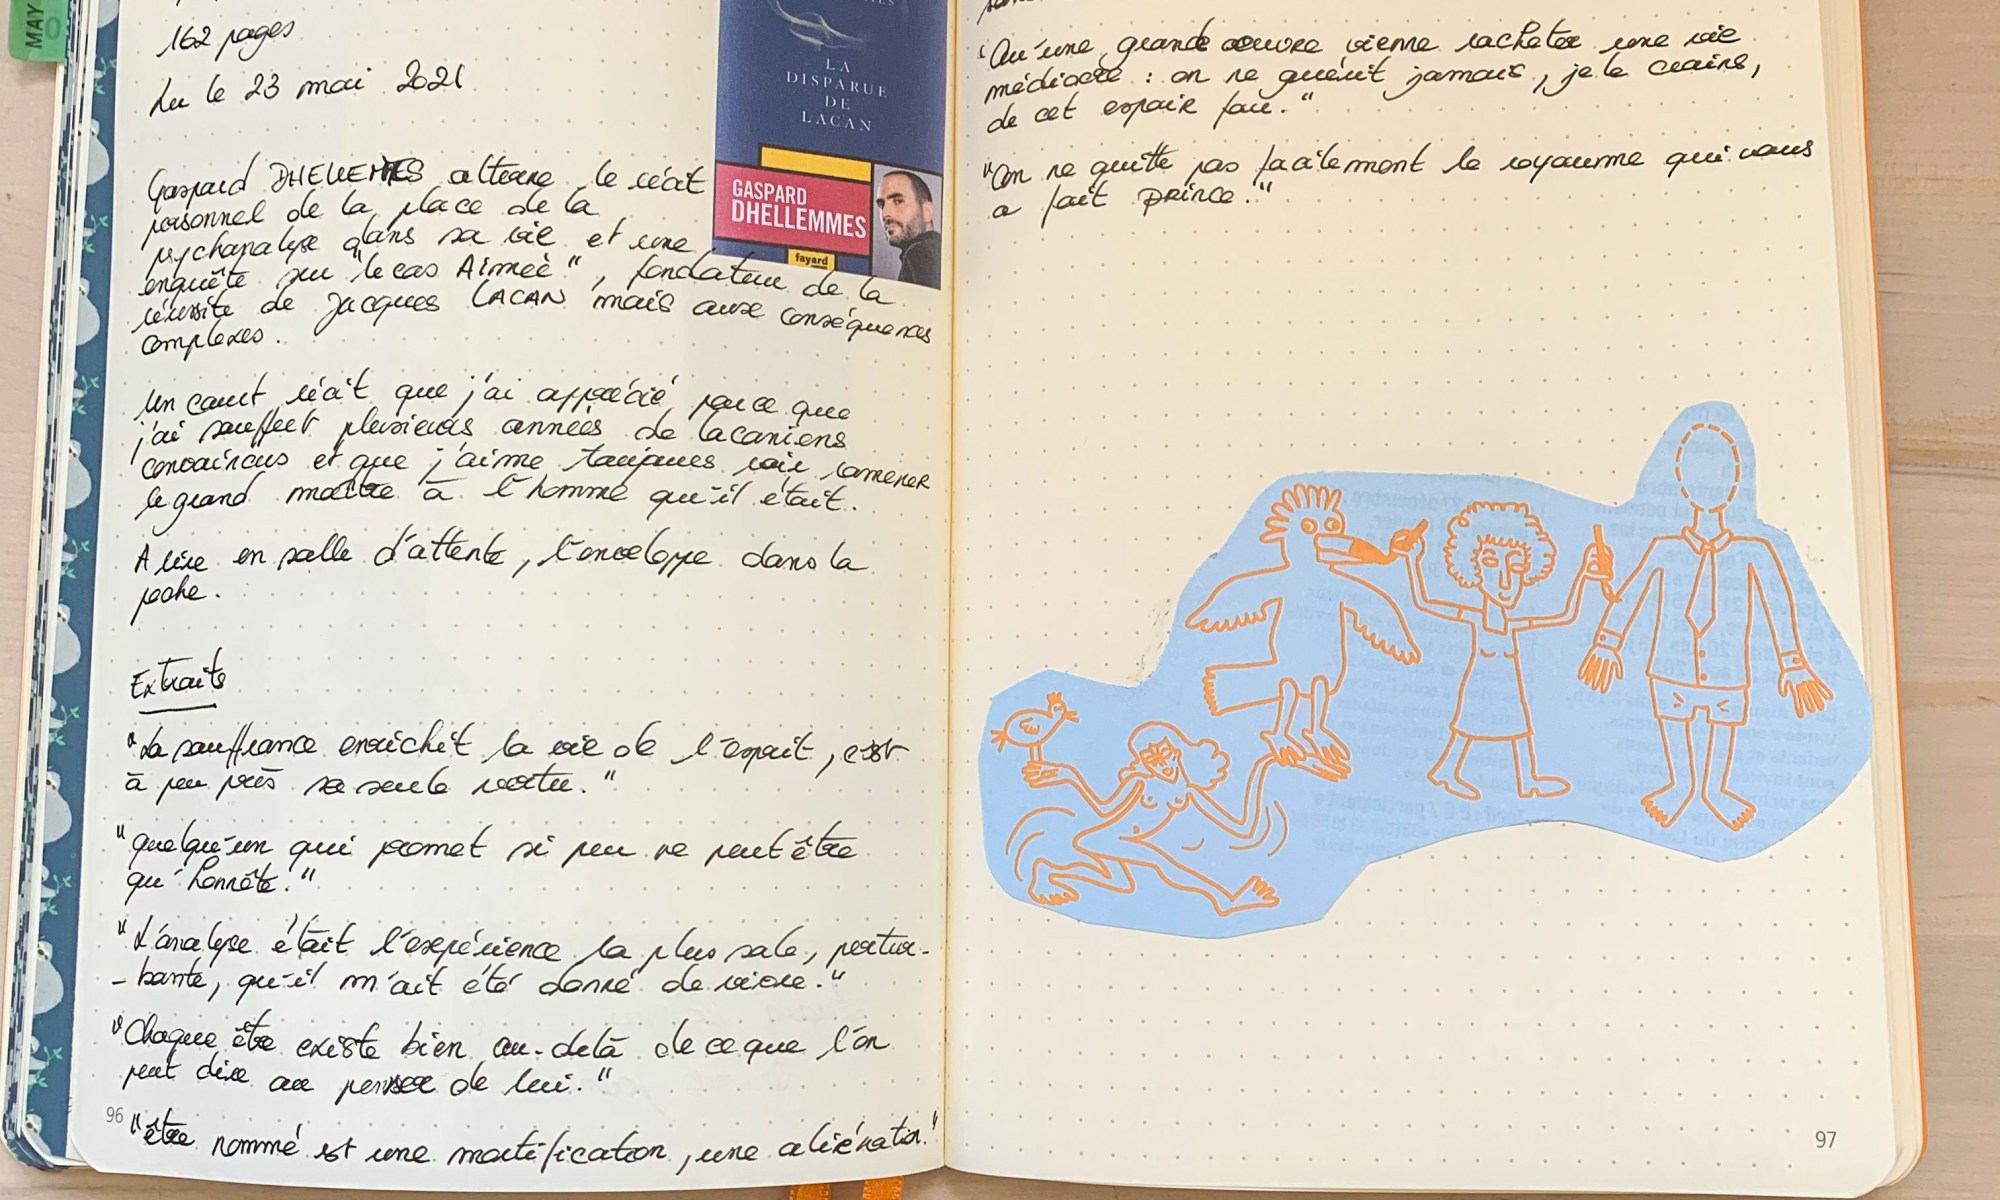 MAY
162 pages
Lu le 23 mai 2021
LA
DISPARUE
DE
LACAN
GASPARD
DHELLEMMES
fayard
Gaspard DHELLEMMES alterne le récit
personnel de la place de la
psychanalyse dans sa vie et une
enquête sur "le cas Aimée", fondateur de la
réussite de Jacques LACAN mais aux conséquences
complexes.
Un court récit que j'ai apprécié parce que
j'ai souffert plusieurs années de lacaniens
convaincus et que j'aime toujours voir ramener
le grand maître à l'homme qu'il était.
A lire en salle d'attente, l'enveloppe dans la
poche.
Extraits
"La souffrance enrichit la vie de l'esprit, c'est
à peu près sa seule vertu."
"Quelqu'un qui promet si peu ne peut être
qu'honnête."
"L'analyse était l'expérience la plus sale, pertur-
-bante, qu'il m'ait été donné de vivre."
"Chaque être existe bien au-delà de ce que l'on
peut dire ou penser de lui."
"être nommé est une mortification, une aliénation."
96
"Qu'une grande œuvre vienne racheter une vie
médiocre : on ne guérit jamais, je le crains,
de cet espoir fou."
"On ne quitte pas facilement le royaume qui vous
a fait prince."
97